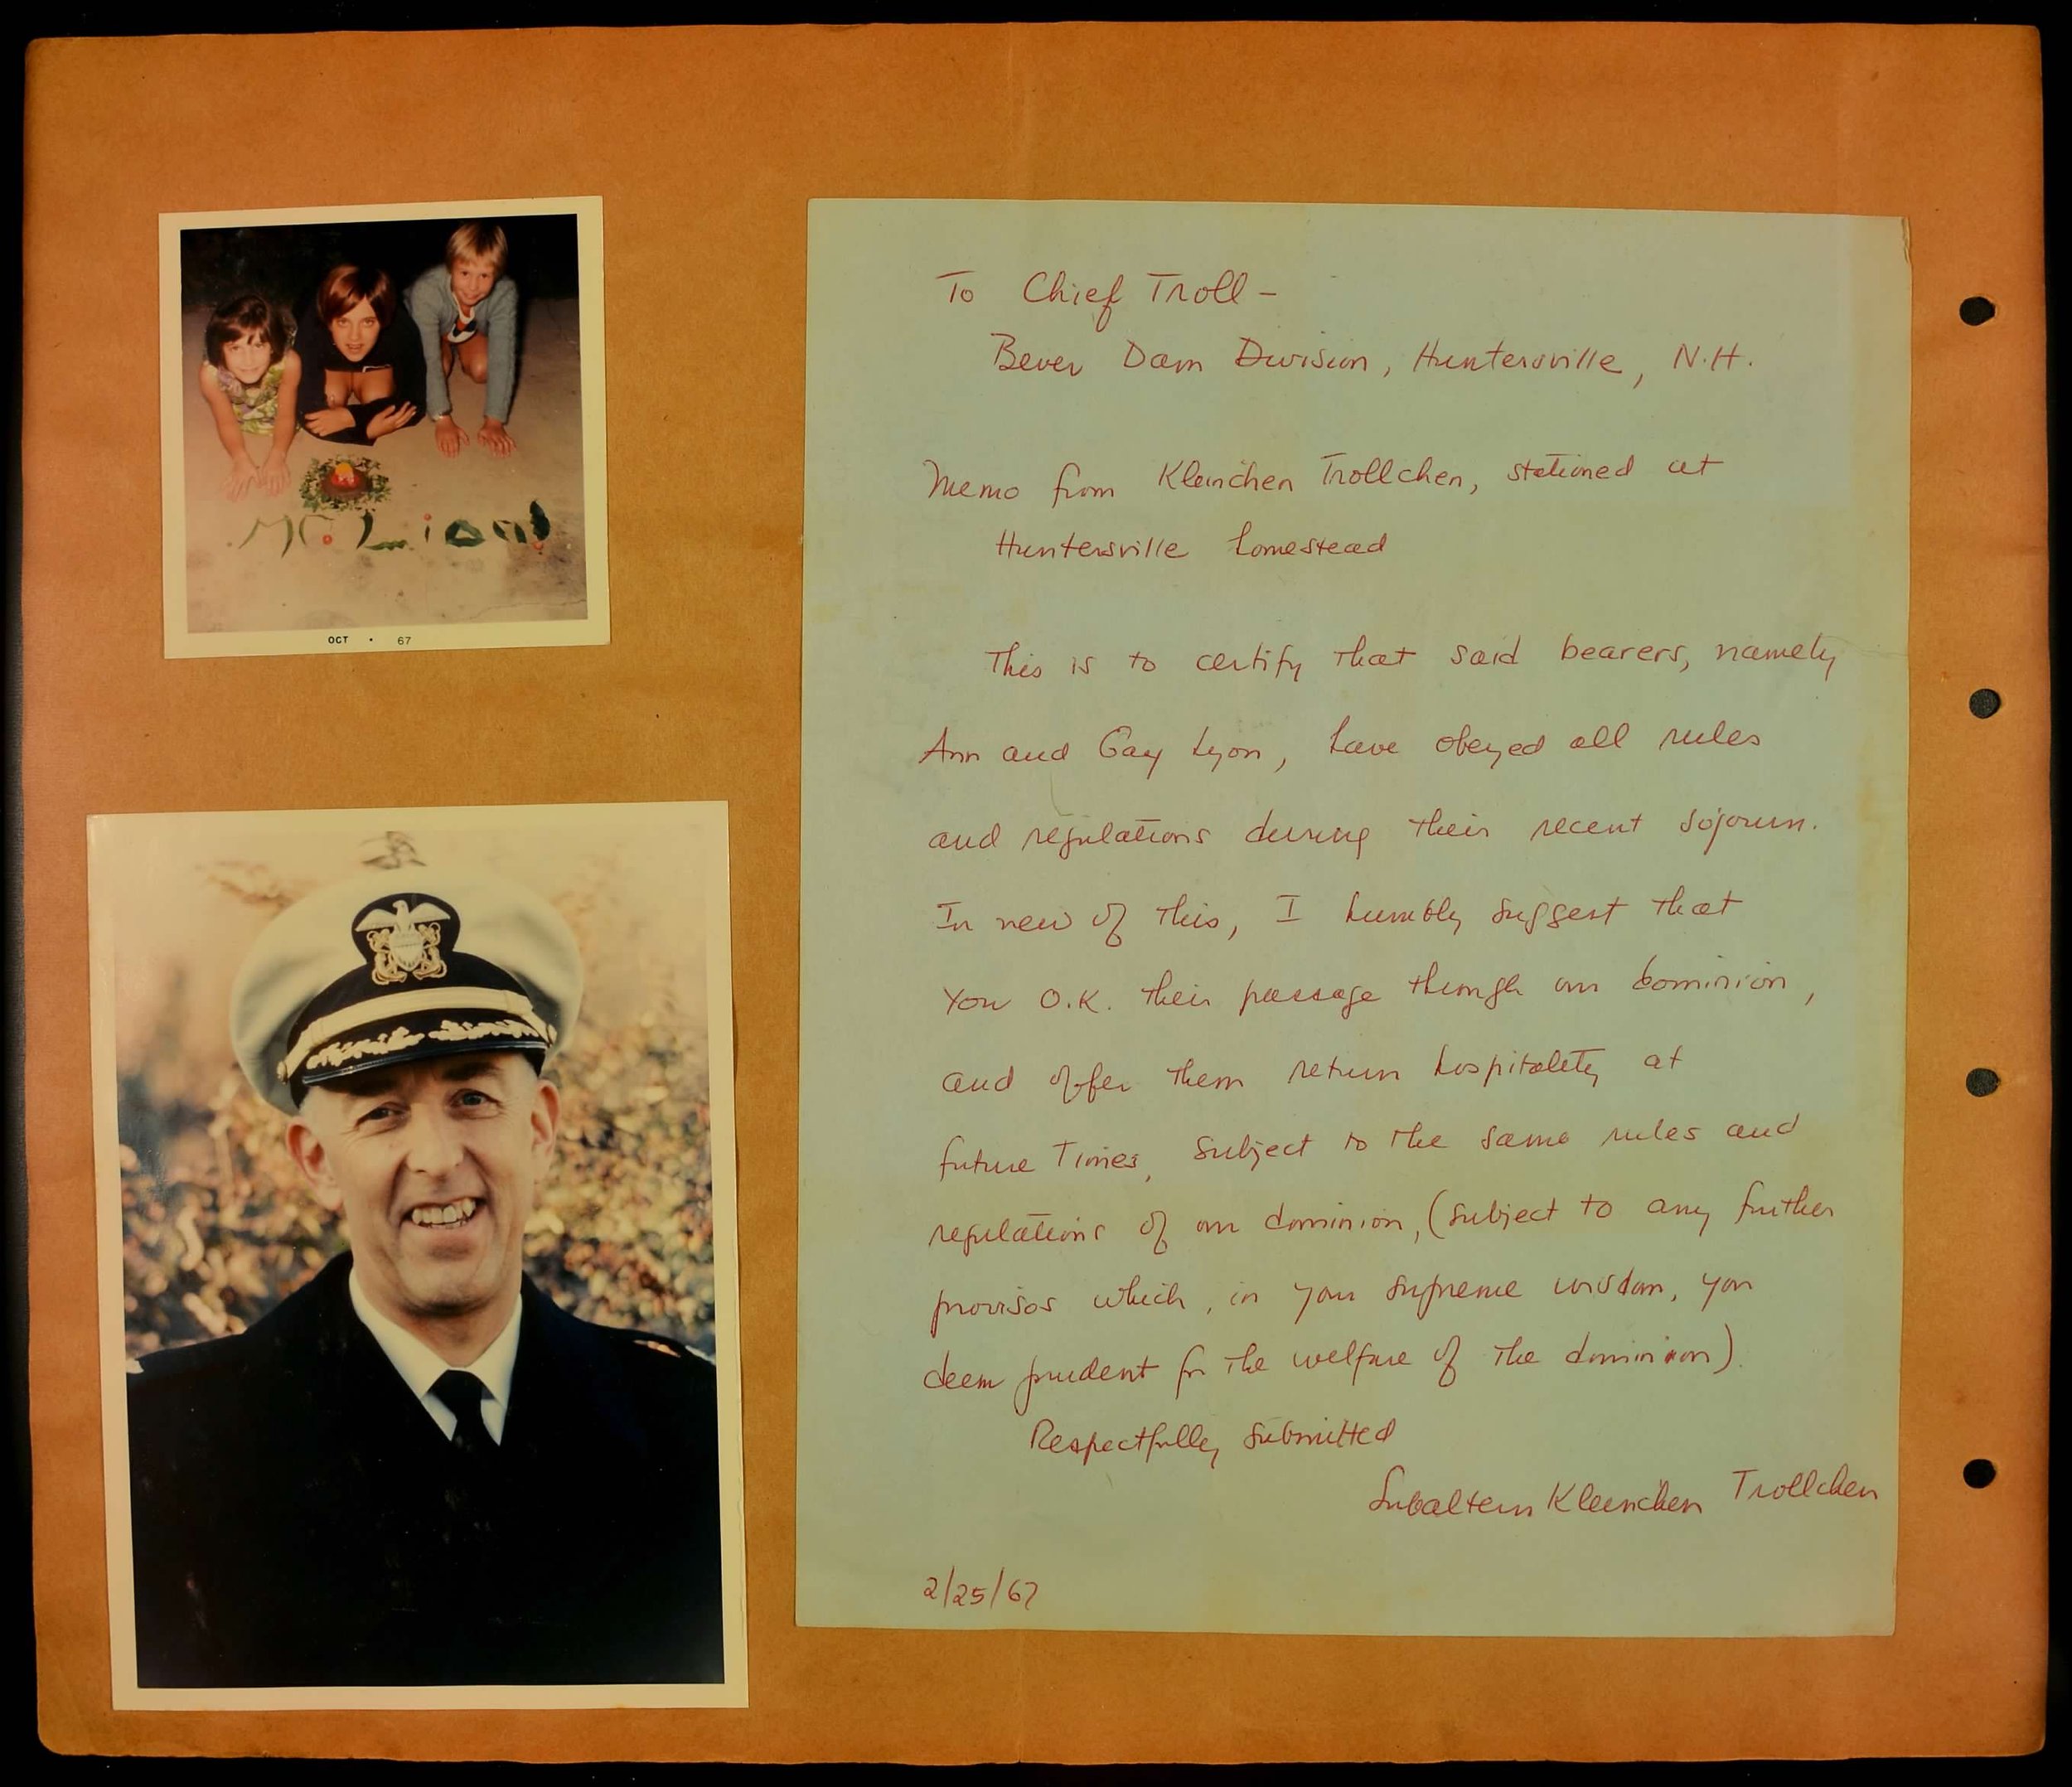 Mr. Lion!
OCT • 67
To Chief Troll -
Bever Dam Division, Huntersville, N.H.
Memo from Kleinchen Trollchen, stationed at
Huntersville homestead
This is to certify that said bearers, namely
Ann and Gay Lyon, have obeyed all rules
and regulations during their recent sojourn.
In view of this, I humbly suggest that
You O.K. their passage through our dominion,
and offer them return hospitality at
future Times, Subject to the same rules and
regulations of our dominion, (subject to any further
provisos which, in your supreme wisdom, you
deem prudent for the welfare of the dominion)
Respectfully submitted
Subaltern Kleinchen Trollchen
2/25/67